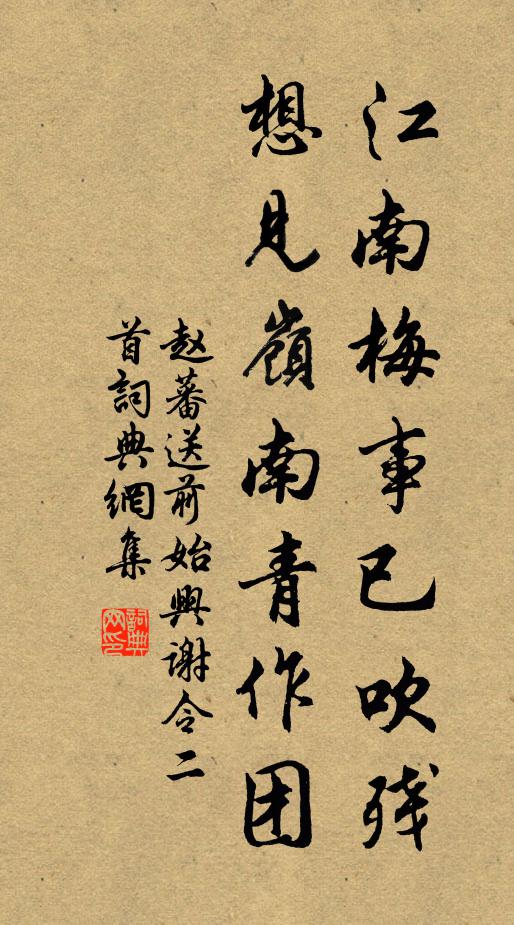 江南梅事已吹残
想见嶺南青作团
赵蕃送前始興谢令二
首詞典網集
詞典网印